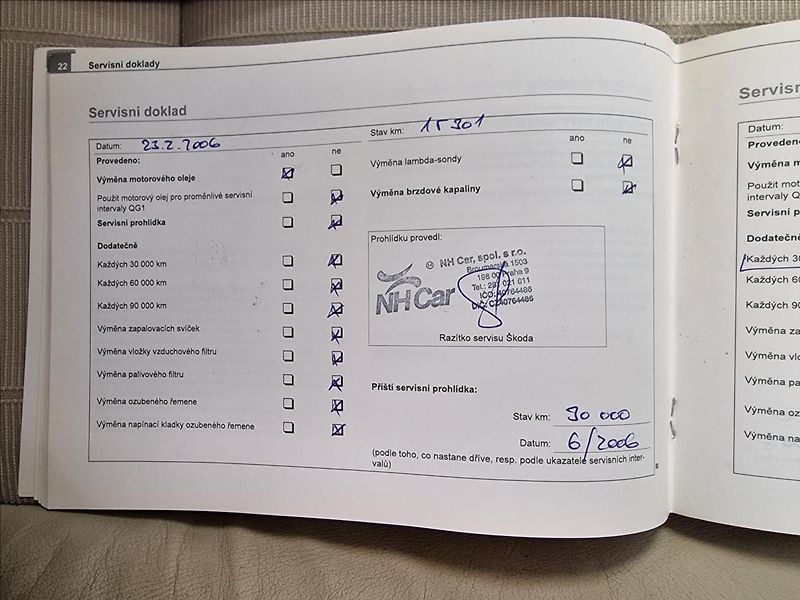 22 Servisní doklady
Servisní doklad
Datum: 23.2.2006
Provedeno:
ano ne
Výměna motorového oleje
Použit motorový olej pro proměnlivé servisní
intervaly QG1
Servisní prohlídka
Dodatečně
Každých 30 000 km
Každých 60 000 km
Každých 90 000 km
Výměna zapalovacích svíček
Výměna vložky vzduchového filtru
Výměna palivového filtru
Výměna ozubeného řemene
Výměna napínací kladky ozubeného řemene
Stav km: 15 901
ano ne
Výměna lambda-sondy
Výměna brzdové kapaliny
Prohlídku provedl:
NH Car
NH Car, spol. s r.o.
Broumarská 1503
198 00 Praha 9
Tel.: 281 021 611
IČO: 40764486
DIČ: CZ40764486
Razítko servisu Škoda
Příští servisní prohlídka:
Stav km: 30 000
Datum: 6/2006
(podle toho, co nastane dříve, resp. podle ukazatele servisních inter-
valů)
Servisn
Datum:
Provedeno
Výměna m
Použit moto
intervaly QG
Servisní p
Dodatečně
Každých 30
Každých 60
Každých 90
Výměna za
Výměna vlo
Výměna pa
Výměna oz
Výměna na